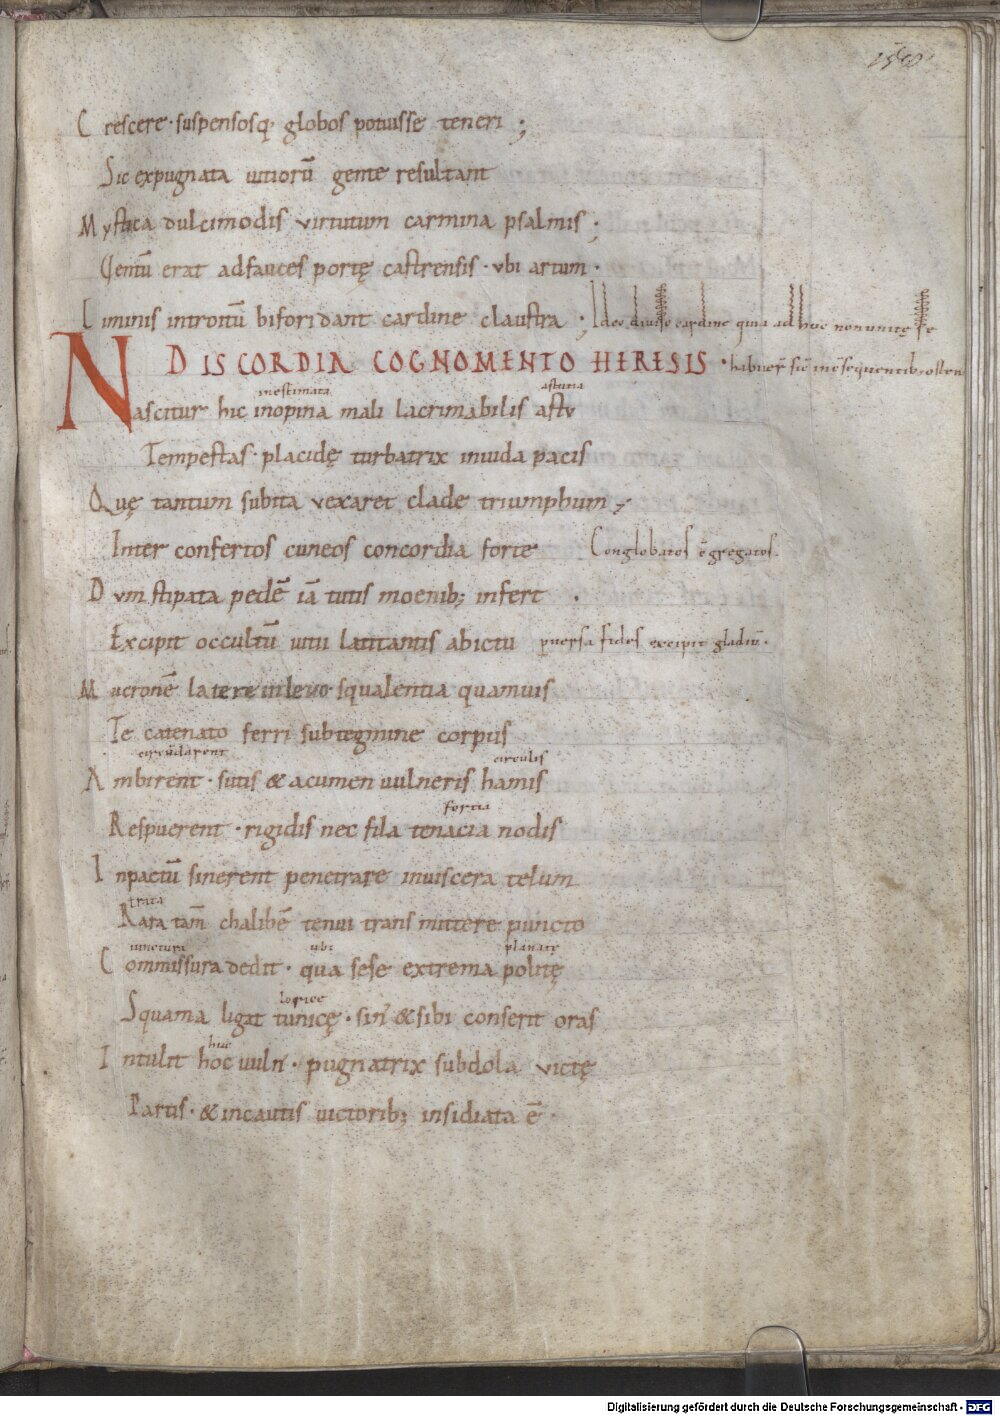 150
Crescere · suspensosq; globos potuisse teneri ;
Sic expugnata uitiorū gente resultant
Mystica dulcimodis virtutum carmina psalmis ;
Ventū erat adfauces portę castrensis · vbi artum ·
Liminis introitū bifori dant cardine claustra ; Ideo diuiso cardine quia adhuc non unitę
DISCORDIA COGNOMENTO HERESIS · habuer̄ sic
inestimata astutia
Nascitur hic inopina mali lacrimabilis astv
Tempestas · placidę turbatrix inuida pacis
Quę tantum subita vexaret clade triumphum ;
Inter confertos cuneos concordia forte Conglobatos ɫ gregatos.
Dvm stipata pedē iā tutis moenib; infert ·
Excipit occultū uitii latitantis abictu puersa fides excipit gladiū ·
Mucronē latere inleuo squalentia quamuis
Te catenato ferri subtegmine corpus
circūdarent circulis
Ambirent · sutis & acumen uulneris hamis
fortia
Respuerent · rigidis nec fila tenacia nodis
Inpactū sinerent penetrare inuiscera telum
Rara tam̄ chalibē tenui transmittere puncto
iunctura ubi planatę
Commissura dedit · qua sese extrema politę
loricę
Squama ligat tunicę · sin' & sibi conserit oras
huc
Intulit hoc uuln' · pugnatrix subdola victę
Partis · & incautis uictorib; insidiata ē ·
Digitalisierung gefördert durch die Deutsche Forschungsgemeinschaft - DFG